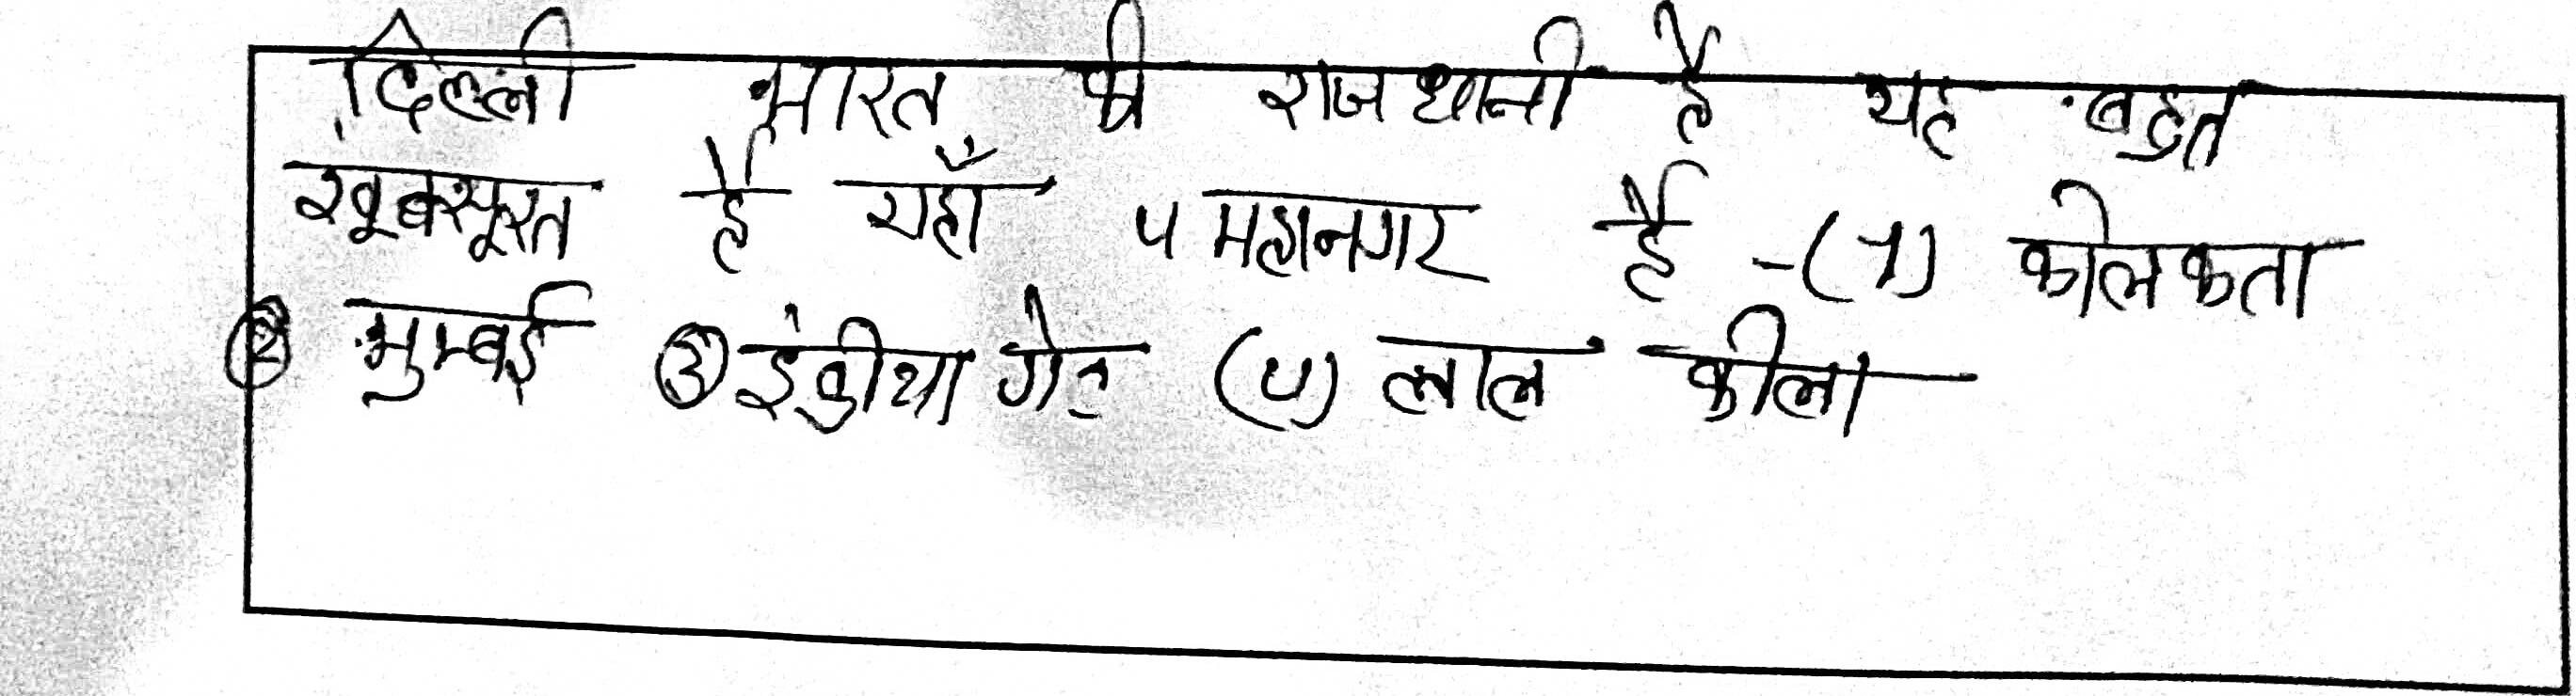 दिल्ली भारत की राजधानी है यह बहुत
खूबसूरत है यहाँ 4 महानगर है -(1) कोलकता
② मुम्बई ③ इंडीया गेट (4) लाल कीला